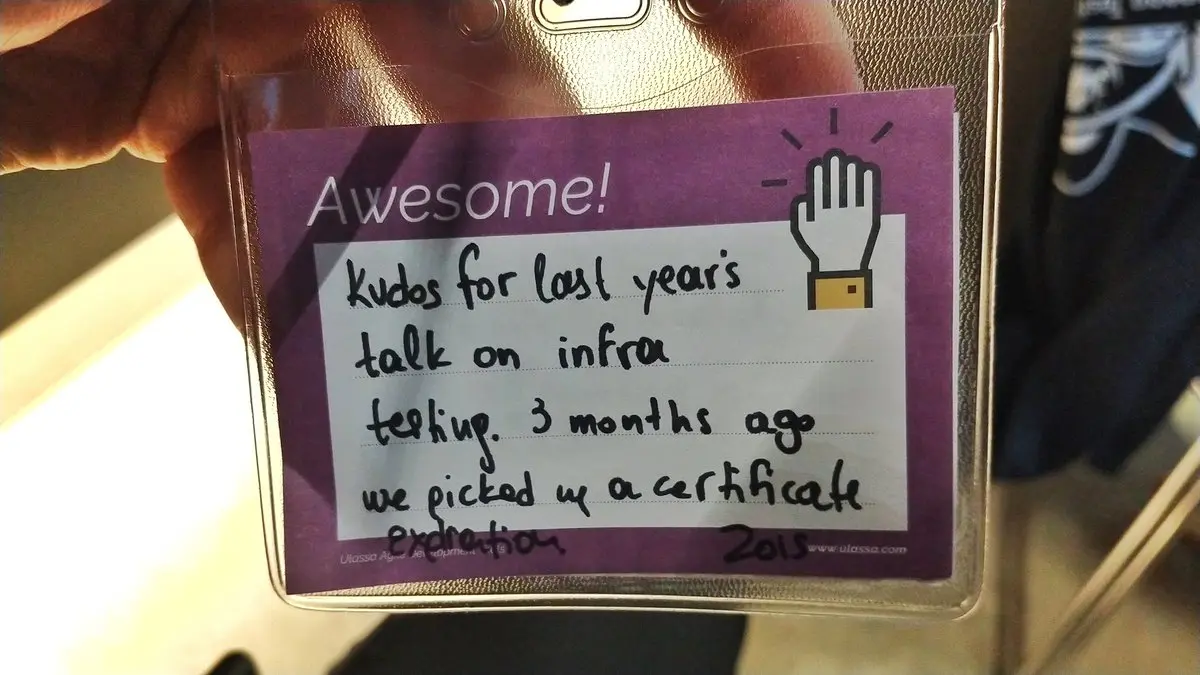 Awesome!
Kudos for last year's
talk on infra
testing. 3 months ago
we picked up a certificate
expiration 2015
Ulassa Agile Development
www.ulassa.com